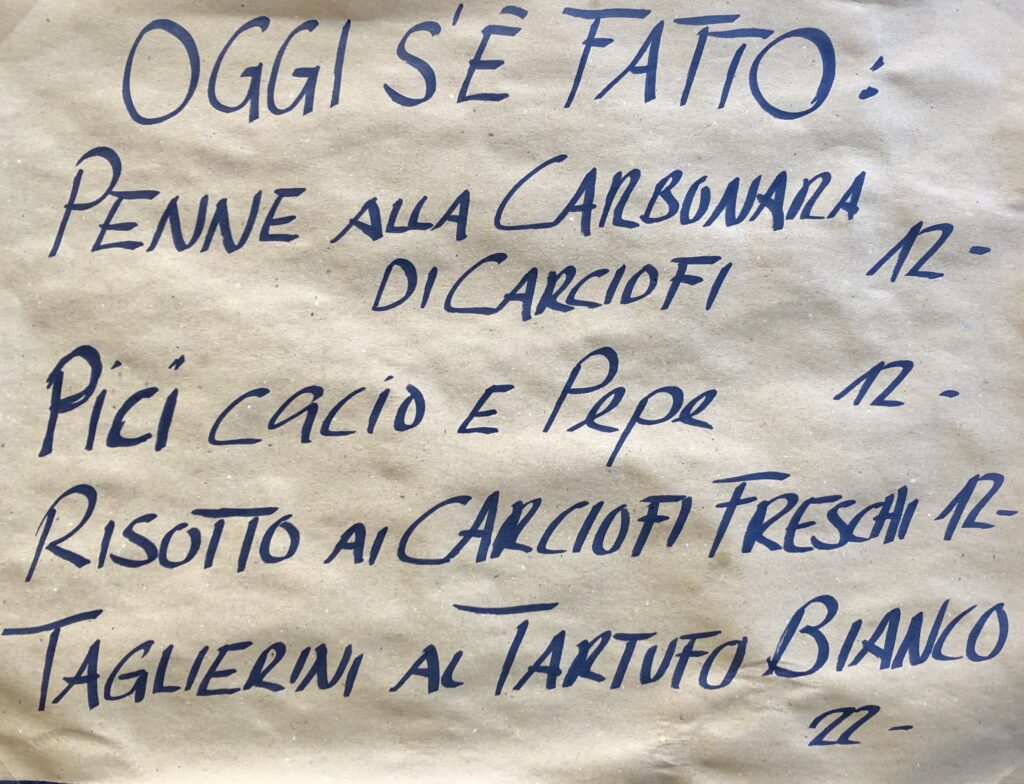 OGGI S'È FATTO:
PENNE ALLA CARBONARA
DI CARCIOFI 12-
Pici cacio e Pepe 12-
RISOTTO AI CARCIOFI FRESCHI 12-
TAGLIERINI AL TARTUFO BIANCO
22-